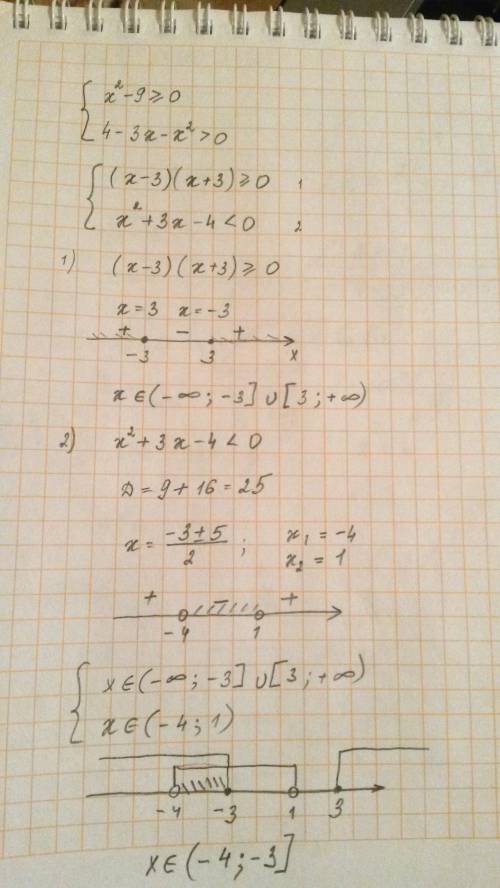 { x² - 9 ⩾ 0
4 - 3x - x² > 0
{ (x-3)(x+3) ⩾ 0 1
x² + 3x - 4 < 0 2
1) (x-3)(x+3) ⩾ 0
x = 3 x = -3
+ - +
-3 3 x
x ∈ (-∞; -3] ∪ [3; +∞)
2) x² + 3x - 4 < 0
D = 9 + 16 = 25
x = (-3 ± 5)/2 ; x₁ = -4
x₂ = 1
+ - +
-4 1
{ x ∈ (-∞; -3] ∪ [3; +∞)
x ∈ (-4; 1)
-4 -3 1 3
x ∈ (-4; -3]